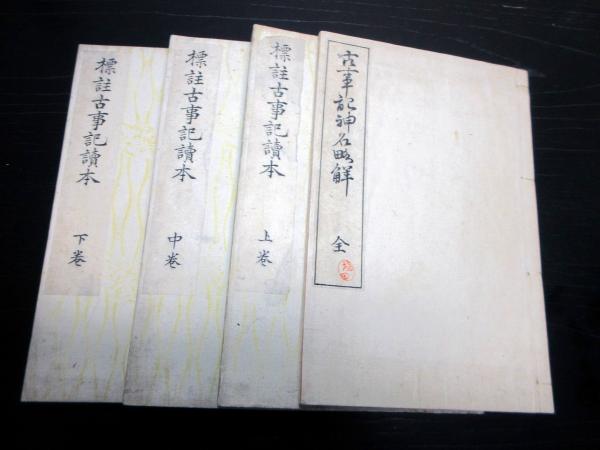 古事記神名略解 全
標註古事記讀本 上卷
標註古事記讀本 中卷
標註古事記讀本 下卷